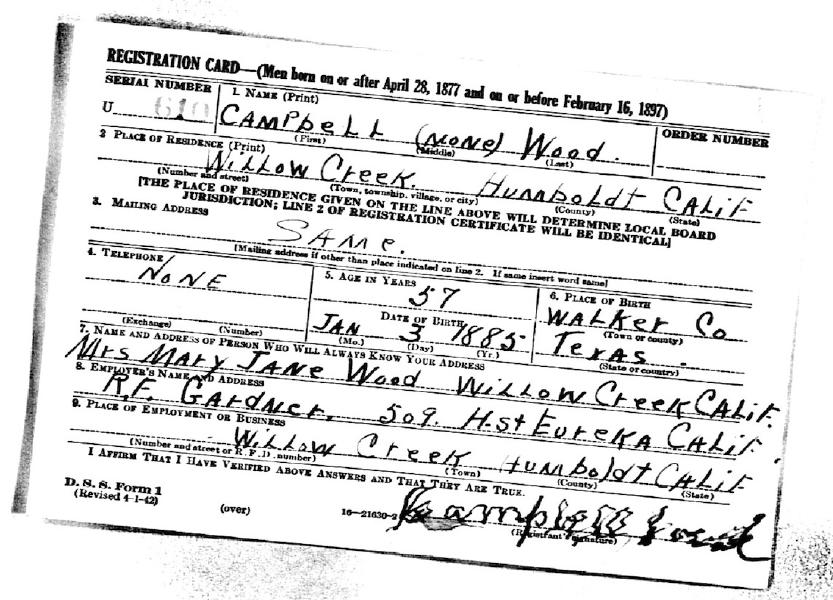 REGISTRATION CARD—(Men born on or after April 28, 1877 and on or before February 16, 1897)
SERIAL NUMBER 1. NAME (Print) ORDER NUMBER
U 610 CAMPbELL (NONE) Wood.
(First) (Middle) (Last)
2 PLACE OF RESIDENCE (Print)
Willow Creek. Humboldt CALiF
(Number and street) (Town, township, village, or city) (County) (State)
[THE PLACE OF RESIDENCE GIVEN ON THE LINE ABOVE WILL DETERMINE LOCAL BOARD
JURISDICTION; LINE 2 OF REGISTRATION CERTIFICATE WILL BE IDENTICAL]
3. MAILING ADDRESS
SAMe.
[Mailing address if other than place indicated on line 2. If same insert word same]
4. TELEPHONE 5. AGE IN YEARS 6. PLACE OF BIRTH
NONE 57 WALKer Co
(Town or county)
DATE OF BIRTH
JAN 3 1885 Texas.
(Exchange) (Number) (Mo.) (Day) (Yr.) (State or country)
7. NAME AND ADDRESS OF PERSON WHO WILL ALWAYS KNOW YOUR ADDRESS
Mrs Mary JANe Wood Willow Creek CALiF.
8. EMPLOYER'S NAME AND ADDRESS
R.F. GArdNer. 509. H.st EUreKA CALiF.
9. PLACE OF EMPLOYMENT OR BUSINESS
Willow Creek Humboldt CALiF
(Number and street or R. F. D. number) (Town) (County) (State)
I AFFIRM THAT I HAVE VERIFIED ABOVE ANSWERS AND THAT THEY ARE TRUE.
D. S. S. Form 1
(Revised 4-1-42) (over) 16—21630-2 Campbell Wood
(Registrant's signature)